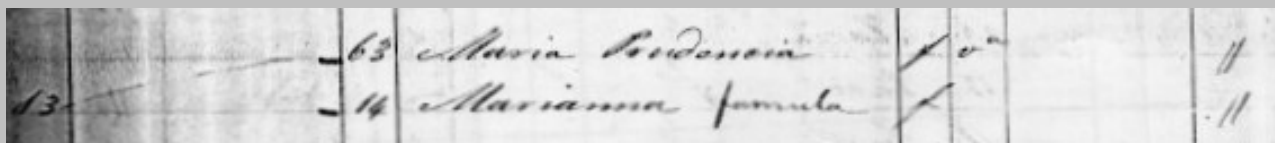 63 Maria Prudencia f vª "
83 14 Marianna famula f "